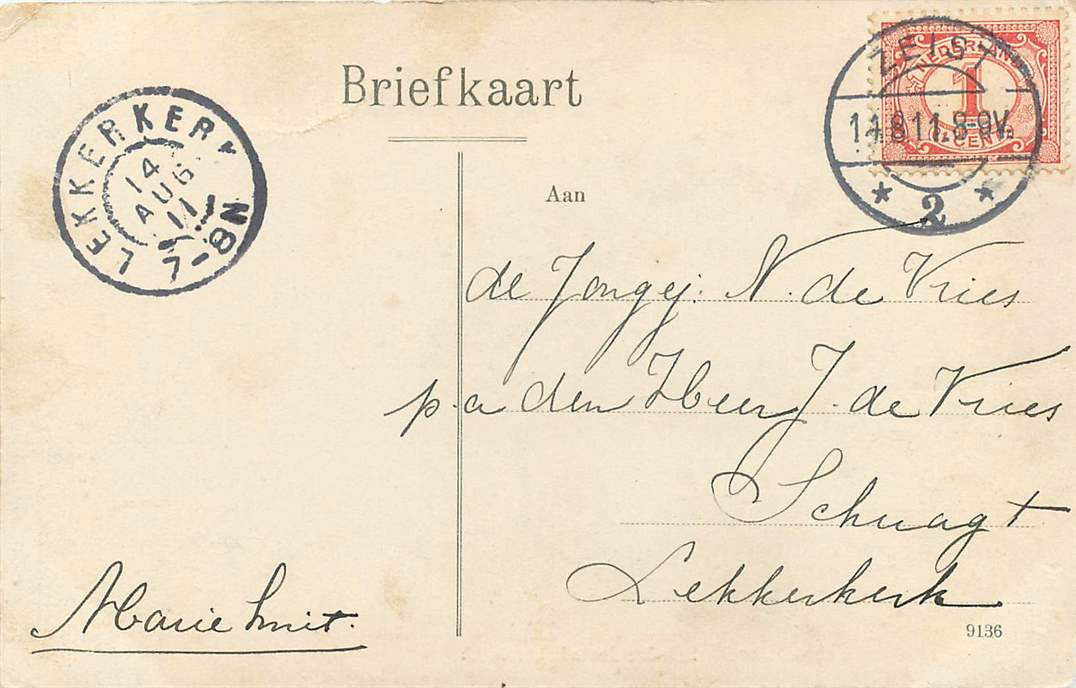 Briefkaart
ZEIST
NEDERLAND
1
CENT
14.8.11.8-9V.
* 2 *
LEKKERKERK
14
AUG
11
7-8N
Aan
de Jongej. N. de Vries
p.a den Heer J. de Vries
Schuagt
Lekkerkerk
Marie Smit.
9136